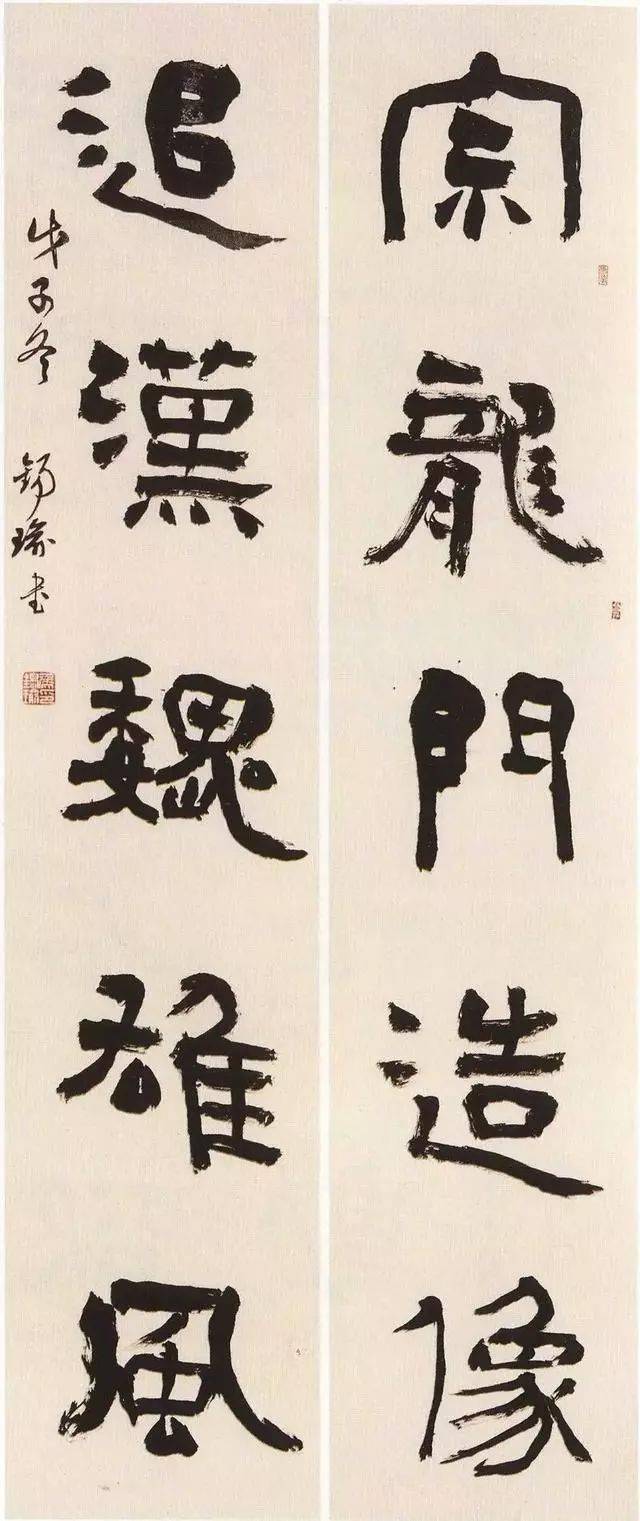 宗龍門造像
追漢魏雄風
戊子冬 錫瑜書